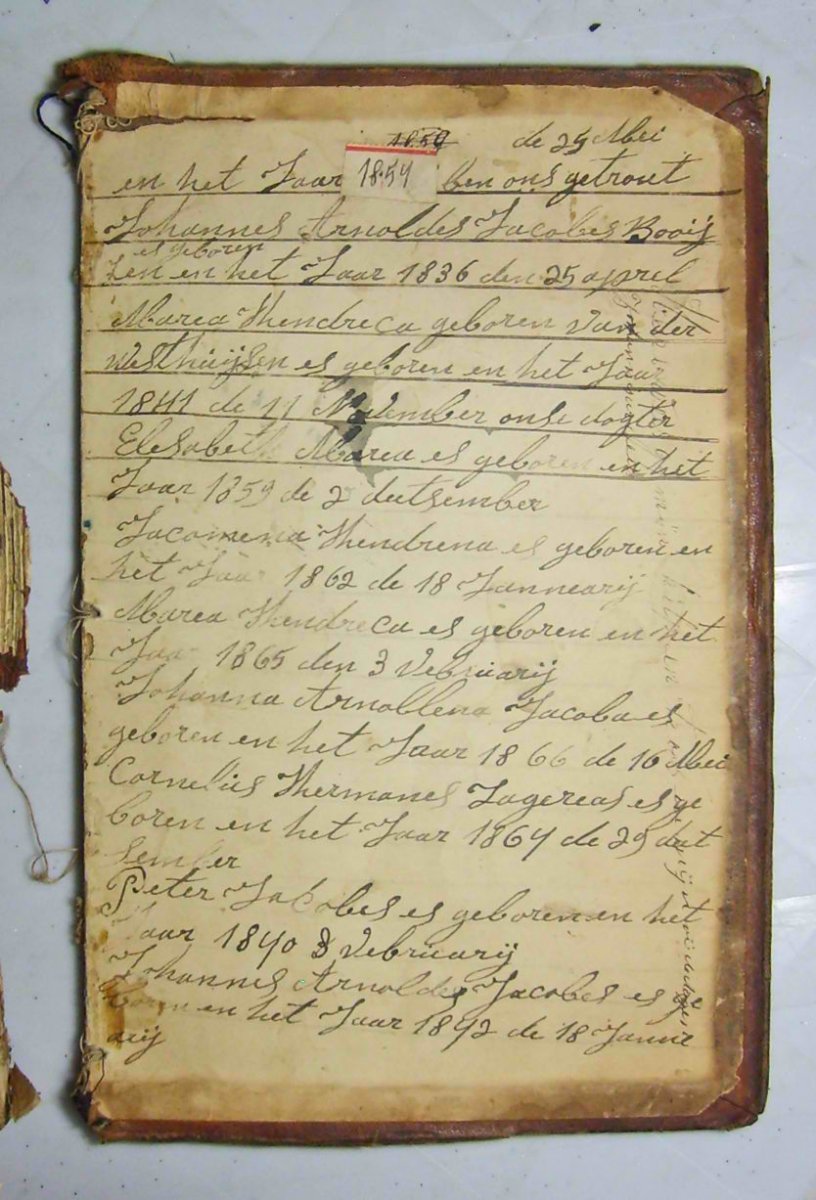 1859 de 25 Mei
en het Jaar 1854 ben ons getrout
Johannes Arnoldes Jacobes Booij
es geboren
zen en het Jaar 1836 den 25 aprel
Marea Hendreca geboren van der
Westhuijsen es geboren en het Jaar
1841 de 11 November onse dogter
Elesabeth Marea es geboren en het
Jaar 1859 de 2 deetsember
Jacomena Hendrena es geboren en
het Jaar 1862 de 18 Janneurij
Marea Hendreca es geboren en het
Jaar 1865 den 3 Vebruarij
Johanna Arnollena Jacoba es
geboren en het Jaar 1866 de 16 Mei
Cornelies Hermanes Lagereas es ge
boren en het Jaar 1864 de 29 deet
sember
Peter Jacobes es geboren en het
Jaar 1840 3 Vebruarij
Johannes Arnoldes Jacobes es ge
boren en het Jaar 1842 de 18 Janne
arij